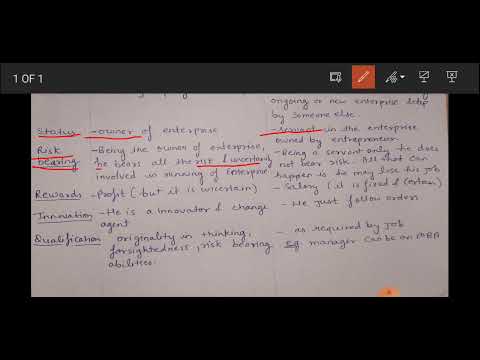 1 OF 1
ongoing or new enterprise setup
by someone else.
Status - owner of enterprise - servant in the enterprise
owned by entrepreneur
Risk bearing - Being the owner of enterprise, - Being a servant only he does
he bears all the risk & uncertainty not bear risk. All that can
involved in running of enterprise happen is he may lose his job
Rewards - Profit (but it is uncertain) - Salary (it is fixed & certain)
Innovation - He is a Innovator & change - He just follow orders
agent
Qualification originality in thinking, - as required by Job
farsightedness, risk bearing Eg. manager can be an MBA
abilities.